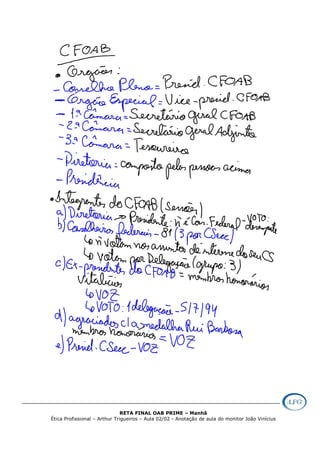 CFOAB
• Orgãos:
- Conselho Pleno = Presid. CFOAB
- Orgão Especial = Vice-presid. CFOAB
- 1ª Câmara = Secretário Geral CFOAB
- 2ª Câmara = Secretário Geral Adjunto
- 3ª Câmara = Tesoureiro
- Diretoria = composta pelas pessoas acima
- Presidência
• Integrantes do CFOAB (sessões)
a) Diretoria → Presidente: ñ é Con. Federal - VOTO: desempate
b) Conselheiros federais - 81 (3 por CSecc)
↳ ñ votam nos assuntos de interesse do seu CS
↳ votam por Delegação (grupo: 3)
c) Ex-presidentes do CFOAB = membros honorários
vitalícios
↳ VOZ
↳ VOTO: 1 delegação - 5/7/94
d) agraciados c/ a medalha Rui Barbosa
membros honorários = VOZ
e) Presid. CSecc - VOZ
RETA FINAL OAB PRIME – Manhã
Ética Profissional – Arthur Trigueiros – Aula 02/02 - Anotação de aula do monitor João Vinícius